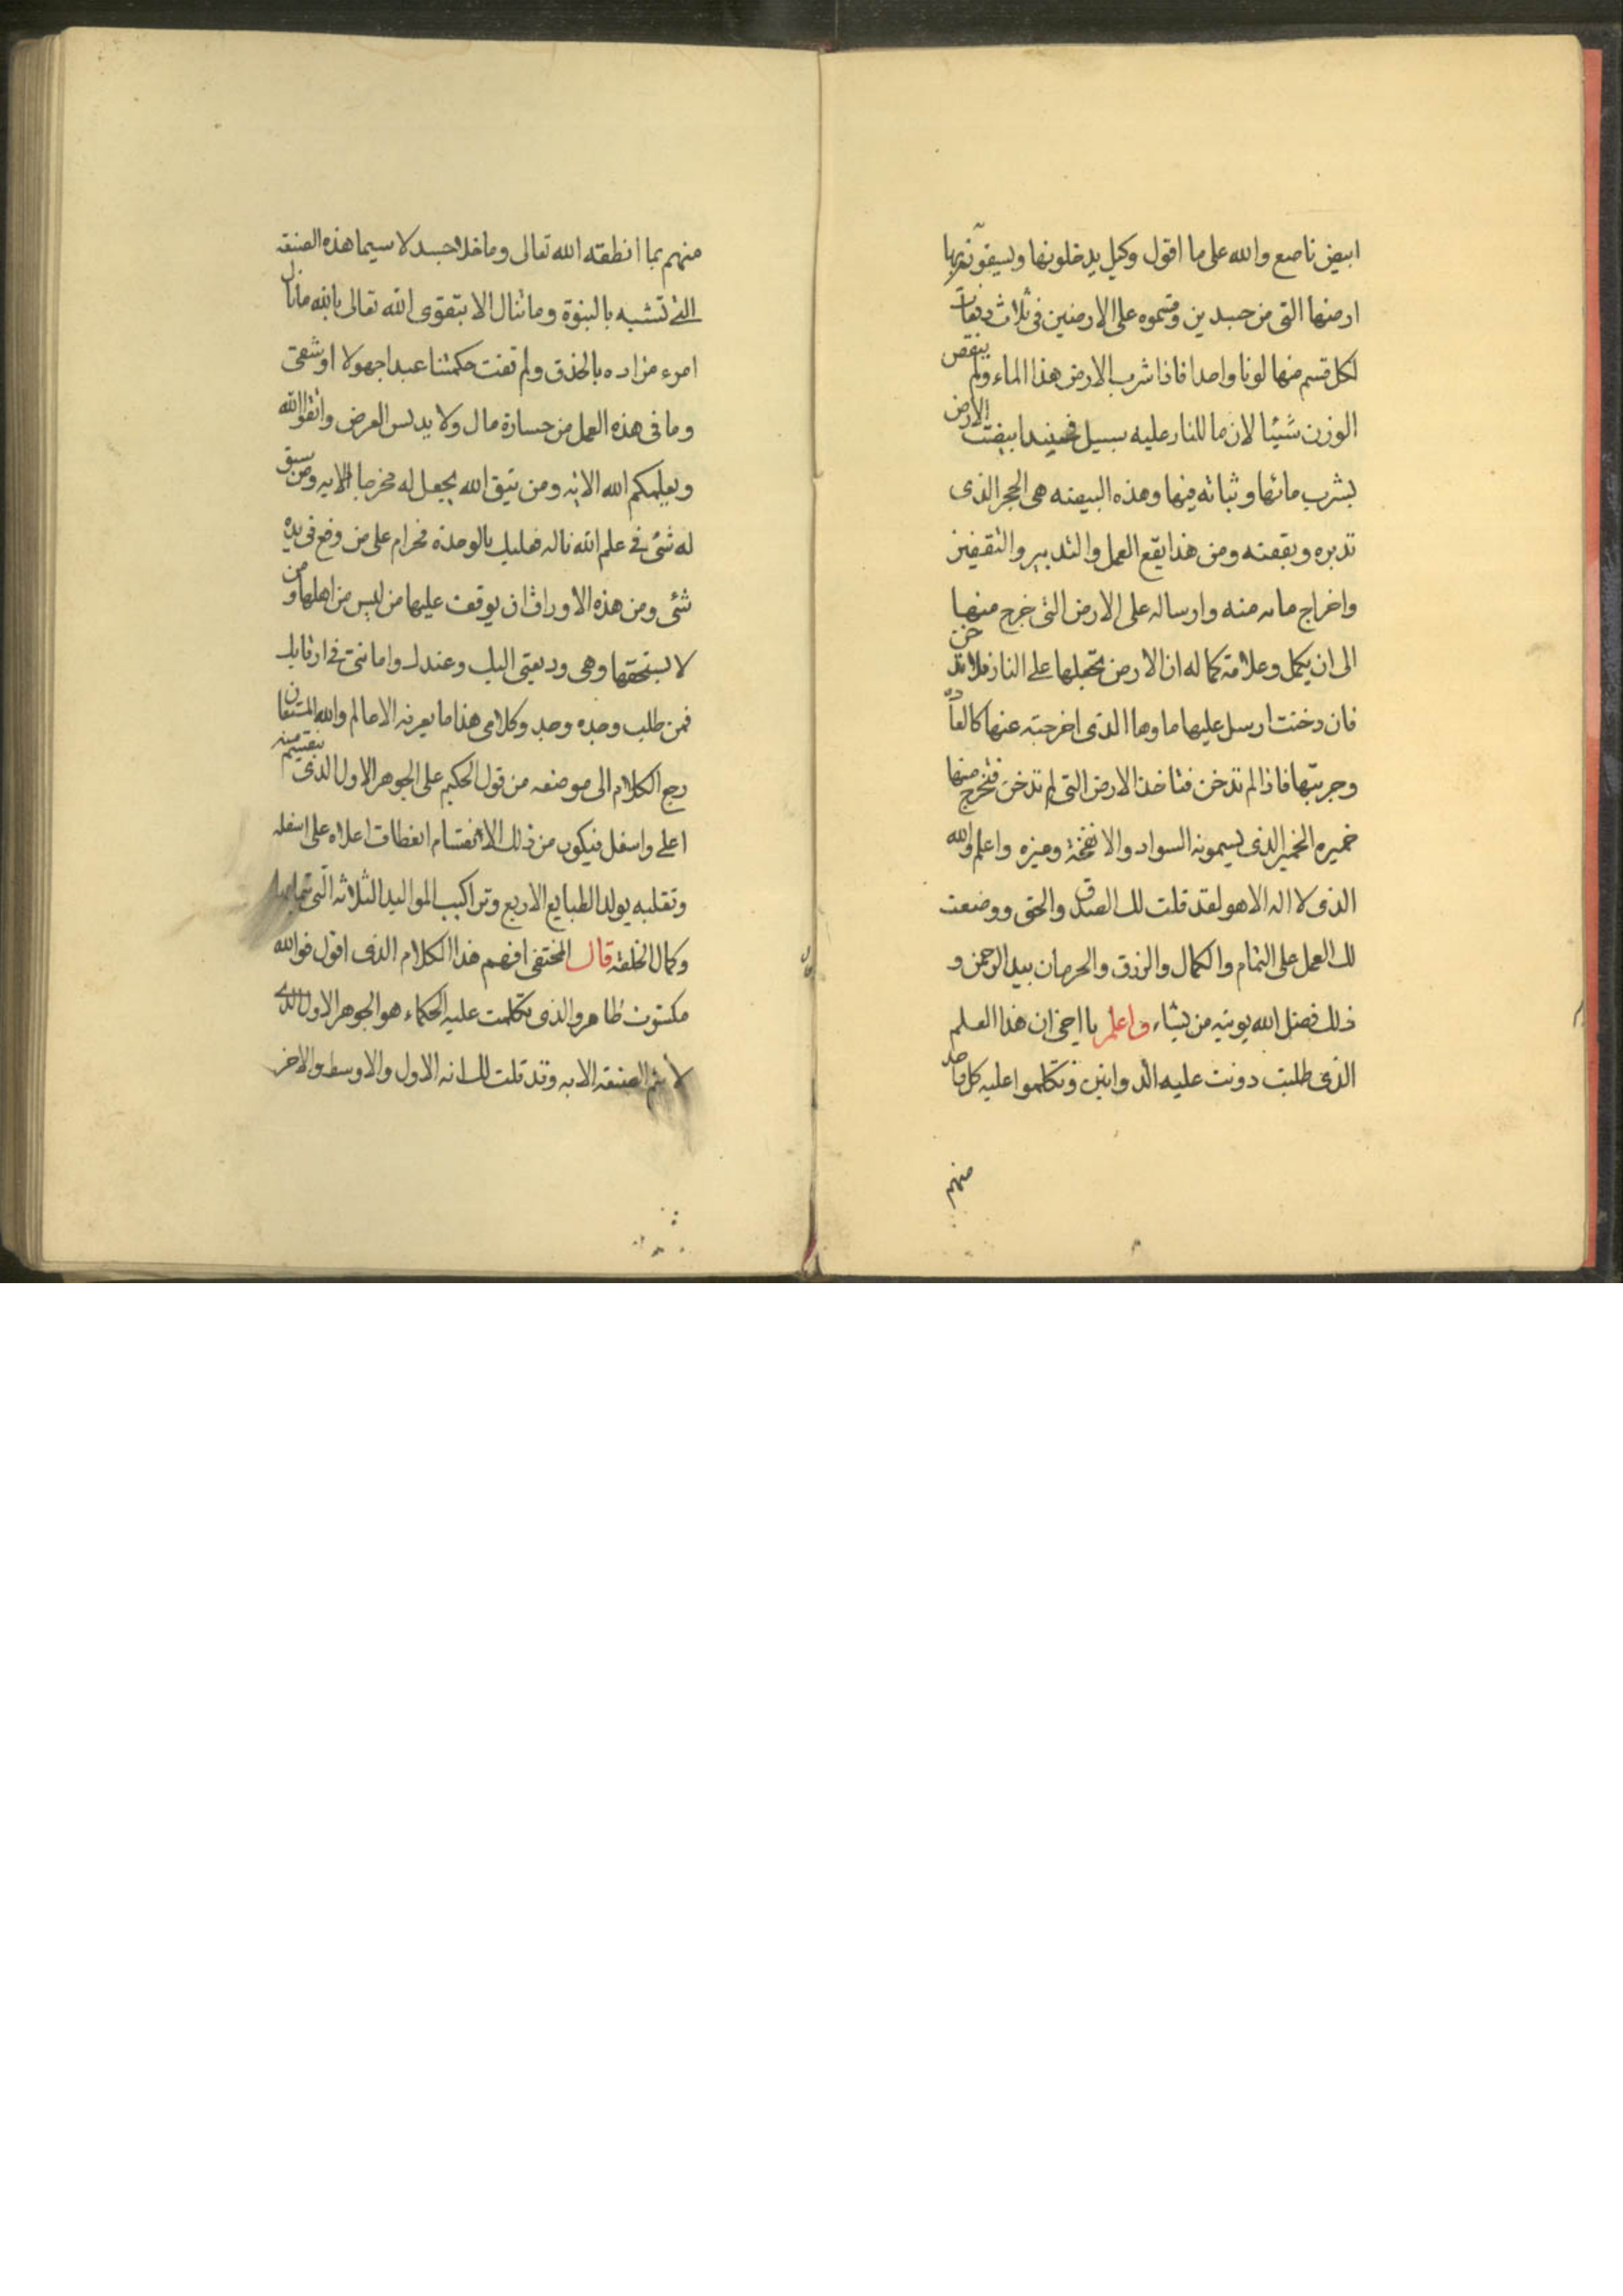 ابيض ناصع والله على ما اقول وكيل يدخلونها ويسقونها بها
ارضها التى من جسدين وقسموه على الارضين فى ثلاث دفعات
لكل قسم منها لونا واحدا فاذا شرب الارض هذا الماء ولم ينقص
الوزن شيئا لان ما للنار عليه سبيل فحينيذ ابيضت الارض
بشرب مائها وثباته فيها وهذه البيضه هى الحجر الذى
تدبره وبقعته ومن هذا يقع العمل والتدبير والتقفيز
واخراج مائه منه وارساله على الارض التى خرج منها
الى ان يكمل وعلامة كماله ان الارض تجعلها على النار فلا تدخن
فان دخنت ارسل عليها ماوها الذى اخرجته عنها كالعادة
وجربتها فاذا لم تدخن فتاخذ الارض التى لم تدخن فتخرج منها
خميره الخمير الذى يسمونه السواد والانفخة وميزه واعلم والله
الذى لا اله الا هو لقد قلت لك الصدق والحق ووضعت
لك العمل على التمام والكمال والرزق والحرمان بيد الرحمن و
ذلك فضل الله يوتيه من يشاء واعلم يا اخى ان هذا العلم
الذى طلبت دونت عليه الدواوين وتكلموا عليه كل واحد
منهم
منهم بما انطقه الله تعالى وما خلا جسد لا سيما هذه الصنعه
التى تشبه بالنبوة وما تنال الا بتقوى الله تعالى بالله ما نال
امرء مراده بالحذق ولم تفت حكمتنا عبدا جهولا او شقى
وما فى هذه العمل من خسارة مال ولا يدلس العرض واتقوا الله
ويعلمكم الله الايه ومن يتق الله يجعل له مخرجا الايه ومن سبق
له شئ فى علم الله ناله فعليك بالوحدة فحرام على من وقع فى يده
شئ ومن هذه الاوراق ان يوقف عليها من ليس من اهلها ومن
لا يستحقها وهى وديعتى اليك وعندك وامانتى فى رقابك
فمن طلب وجده وجد وكلامى هذا ما يعرفه الا عالم والله المستعان
رجع الكلام الى موضعه من قول الحكيم على الجوهر الاول الذى بتقسيم منه
اعلى واسفل فيكون من ذلك الانقسام انعطاف اعلاه على اسفله
وتقلبه يولد الطبايع الاربع وتراكيب المواليد الثلاثه التى
وكمال الخلقه قال المختفى افهم هذا الكلام الذى اقول فوالله
مكتوت ظاهر والذى تكلمت عليه الحكماء هو الجوهر الاول الذى
لا يتم الصنعه الا به وقد قلت لك انه الاول والاوسط والاخر